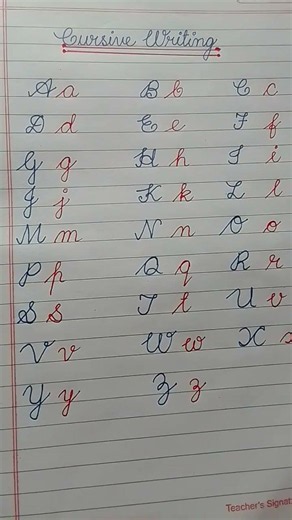 Cursive Writing
A a B b C c
D d E e F f
G g H h I i
J j K k L l
M m N n O o
P p Q q R r
S s T t U u
V v W w X x
Y y Z z
Teacher's Signat